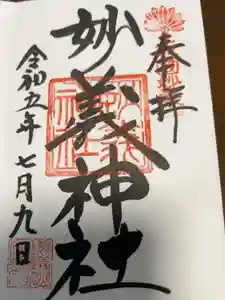 奉拝
妙義神社
令和五年七月九日